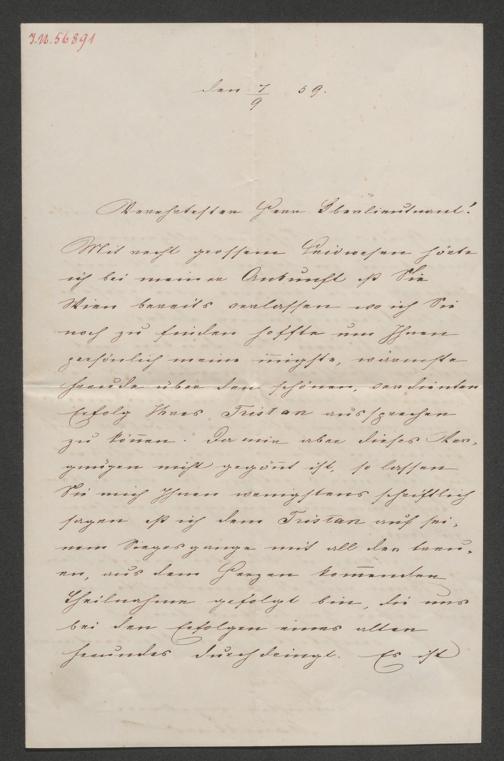 I.N. 56891
den 7/9 59.
Verehrtester Herr Oberlieutnant!
Mit recht grossem Leidwesen hörte
ich bei meiner Ankunft dß Sie
Wien bereits verlassen wo ich Sie
noch zu finden hoffte um Ihnen
persönlich meine innigste, wärmste
Freude über den schönen, verdienten
Erfolg Ihres Tristan aussprechen
zu können. Da mir aber dieses Ver-
gnügen nicht gegönt ist, so lassen
Sie mich Ihnen wenigstens schriftlich
sagen dß ich dem Tristan auf sei-
nem Siegesgange mit all der treu-
en, aus dem Herzen kommenden
Theilnahme gefolgt bin, die uns
bei den Erfolgen eines alten
Freundes durchdringt. Es ist